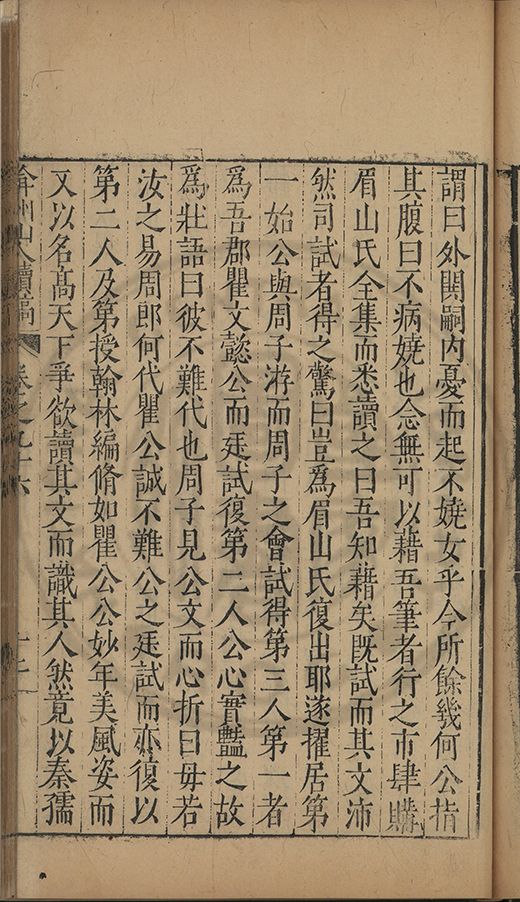 謂曰外閧嗣內憂而起不嬈女乎今所餘幾何公指
其腹曰不病嬈也念無可以藉吾筆者行之市肆購
眉山氏全集而悉讀之曰吾知藉矣既試而其文沛
然司試者得之驚曰豈爲眉山氏復出耶遂擢居第
一始公與周子游而周子之會試得第三人第一者
爲吾郡瞿文懿公而廷試復第二人公心實豔之故
爲壯語曰彼不難代也周子見公文而心折曰毋若
汝之易周郎何代瞿公誠不難公之廷試而亦復以
第二人及第授翰林編脩如瞿公公妙年美風姿而
又以名高天下爭欲讀其文而識其人然竟以秦孺
弇州山人續稿 卷之九十六